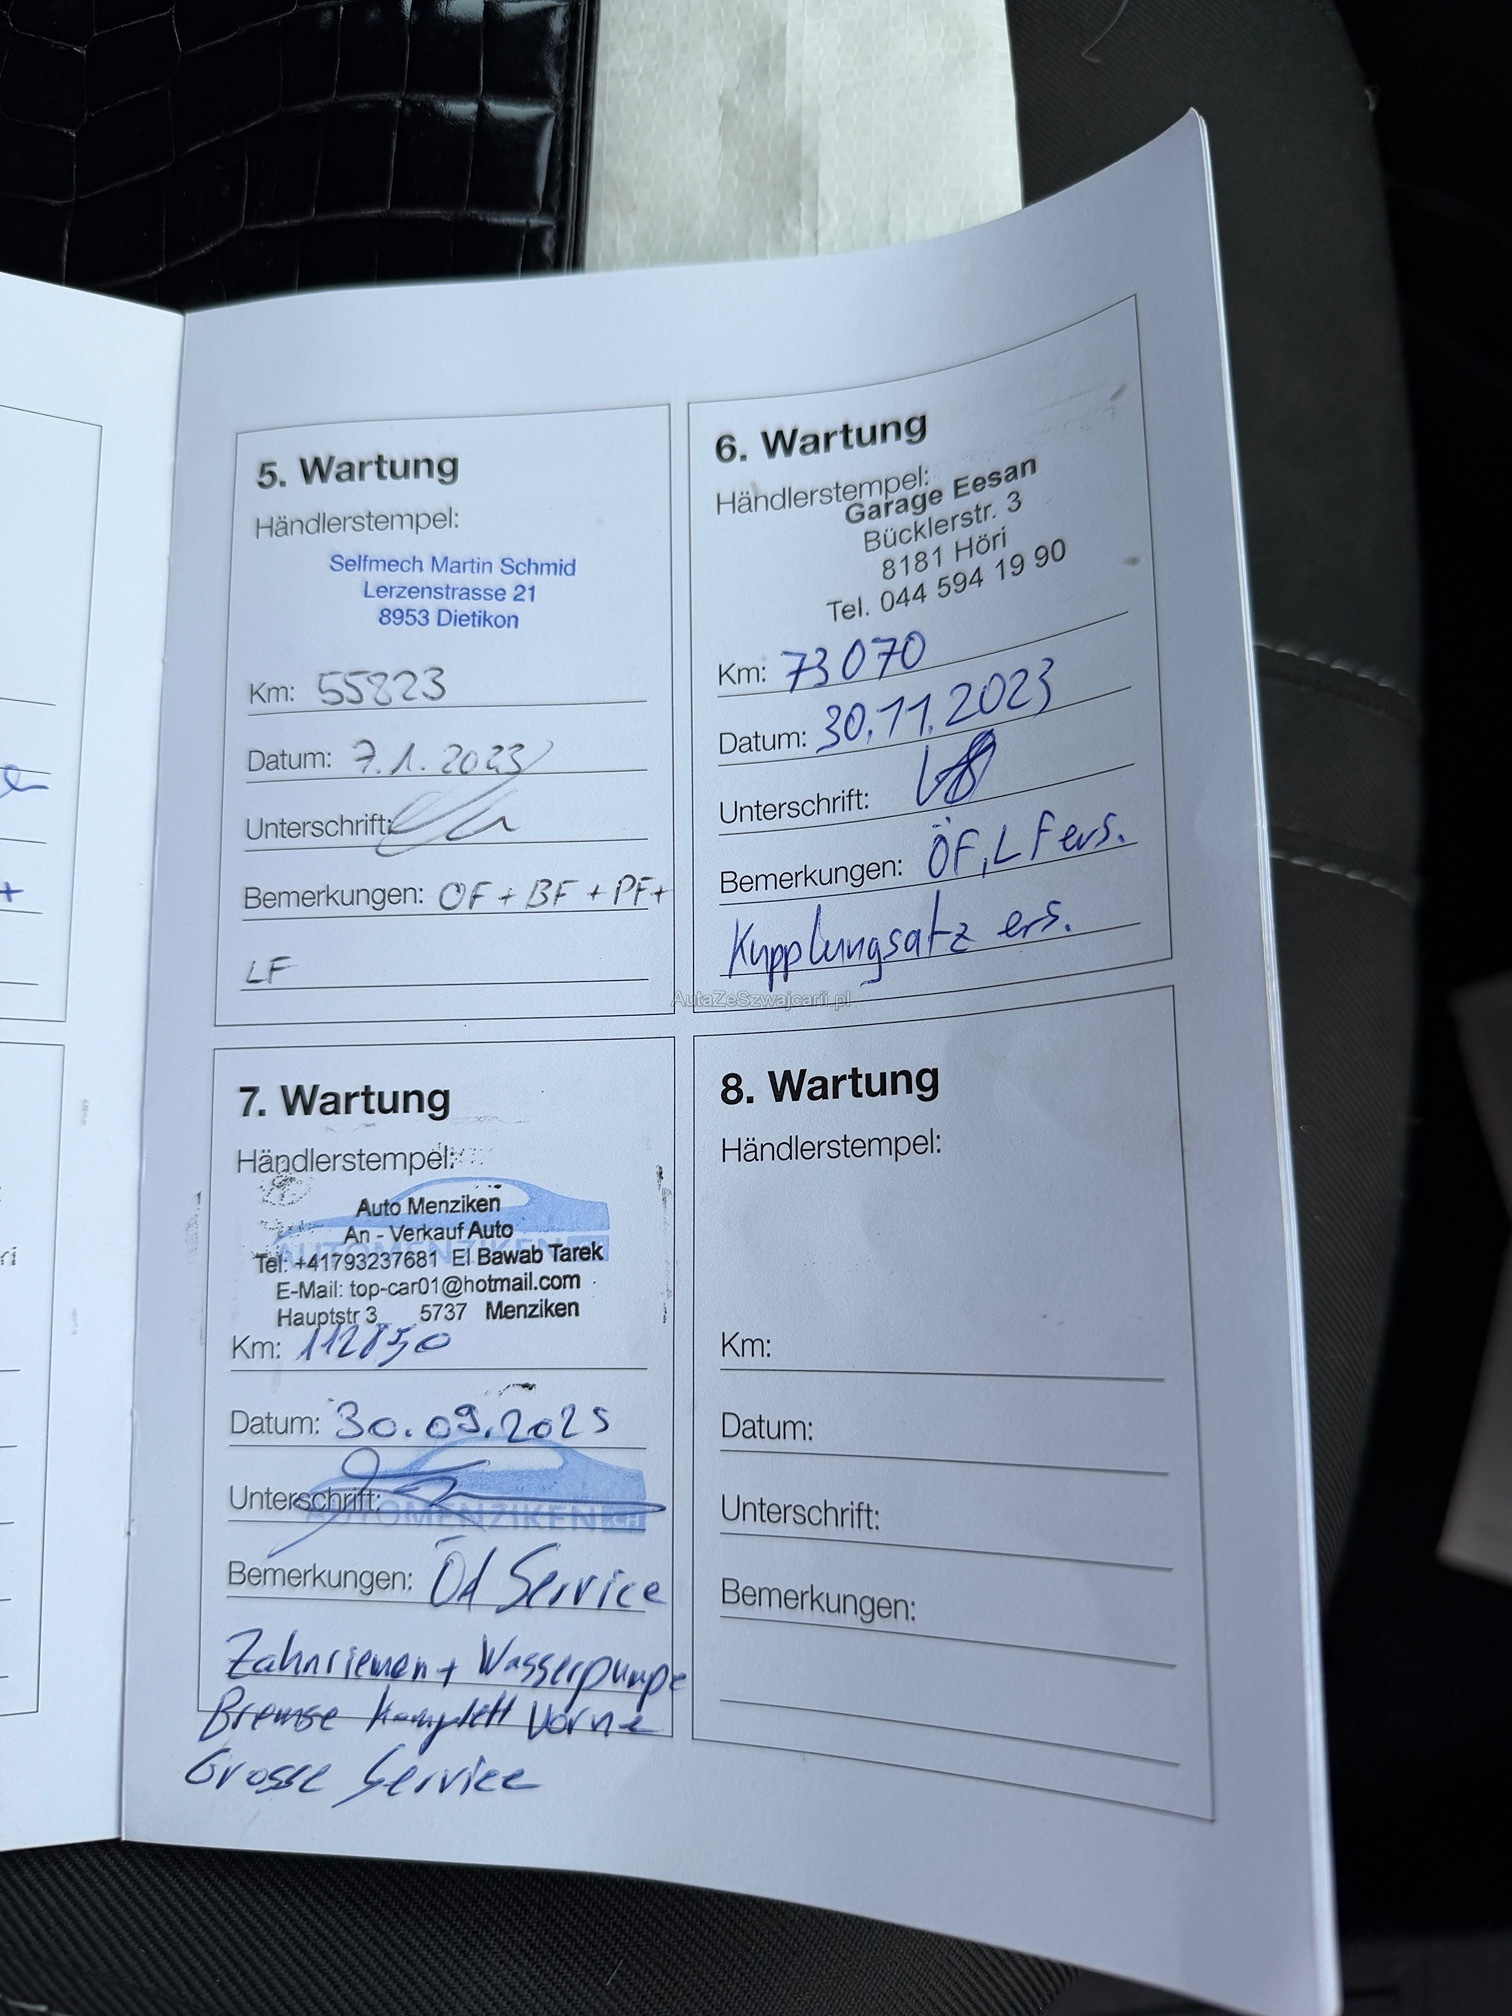 5. Wartung
Händlerstempel:
Selfmech Martin Schmid
Lerzenstrasse 21
8953 Dietikon
Km: 55823
Datum: 7.1.2023
Unterschrift:
Bemerkungen: OF + BF + PF +
LF
6. Wartung
Händlerstempel:
Garage Eesan
Bücklerstr. 3
8181 Höri
Tel. 044 594 19 90
Km: 73070
Datum: 30.11.2023
Unterschrift:
Bemerkungen: ÖF, LF ers.
Kupplungsatz ers.
AutaZeSzwajcarii.pl
7. Wartung
Händlerstempel:
Auto Menziken
An - Verkauf Auto
AUTOMENZIKEN.CH
Tel: +41793237681 El Bawab Tarek
E-Mail: top-car01@hotmail.com
Hauptstr 3 5737 Menziken
Km: 112850
Datum: 30.09.2025
Unterschrift:
AUTOMENZIKEN.CH
Bemerkungen: Öl Service
Zahnriemen + Wasserpumpe
Bremse komplett Vorne
Grosse Service
8. Wartung
Händlerstempel:
Km:
Datum:
Unterschrift:
Bemerkungen: